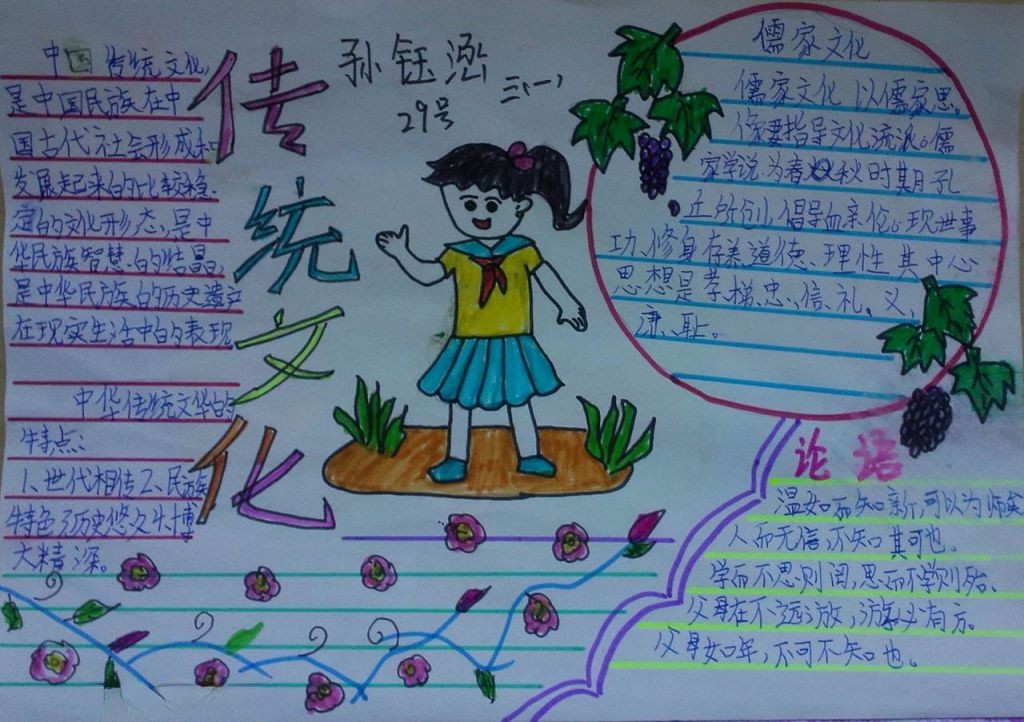 中国传统文化,
是中国民族在中
国古代社会形成和
发展起来的比较稳
定的文化形态,是中
华民族智慧的结晶,
是中华民族的历史遗产
在现实生活中的表现
中华传统文华的
特点:
1、世代相传2、民族
特色3历史悠久4、博
大精深。
传
统
文
化
孙钰
三(一)
29号
儒家文化
儒家文化以儒家思。
像要指导文化流派。儒
家学说为春秋时期孔
丘所创,倡导血亲伦。现世事
功、修身存养道德、理性其中心
思想是孝悌、忠、信、礼、义、
廉、耻。
论语
温如而知新,可以为师矣
人而无信,不知其可也。
学而不思则罔,思而不学则殆、
父母在不远游,游必有方。
父母如年,不可不知也。